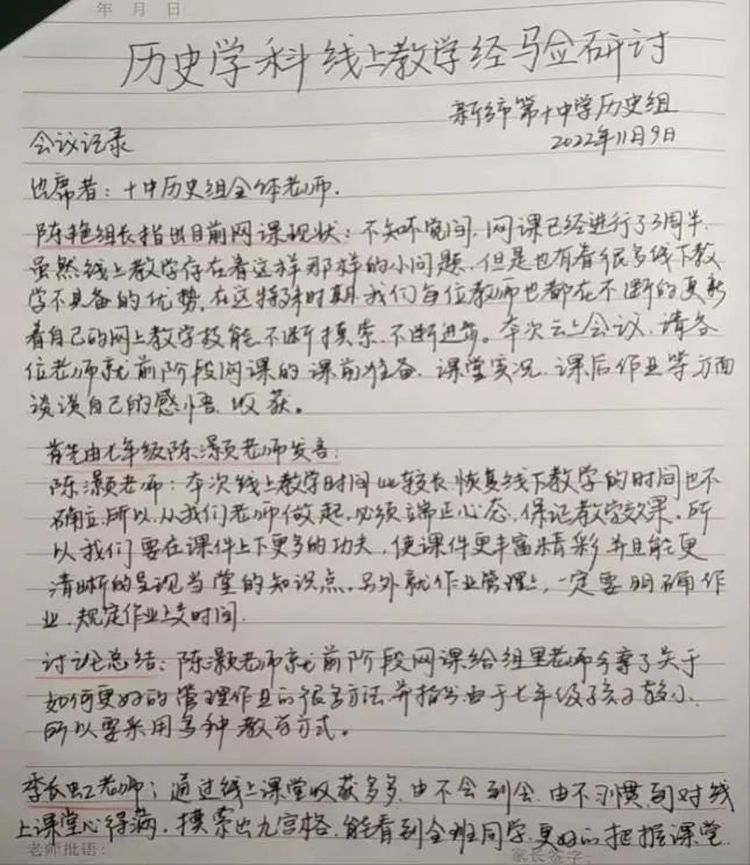 年 月 日
历史学科线上教学经验研讨
新乡市第十中学历史组
会议记录
2022年11月9日
出席者：十中历史组全体老师.
陈艳组长指出目前网课现状：不知不觉间，网课已经进行了3周半.
虽然线上教学存在着这样那样的小问题，但是也有着很多线下教
学不具备的优势，在这特殊时期，我们每位教师也都在不断的更新
着自己的网上教学技能，不断摸索，不断进步。本次云上会议，请各
位老师就前阶段网课的课前准备、课堂实况、课后作业等方面
谈谈自己的感悟、收获。
首先由七年级陈灏颖老师发言：
陈灏老师：本次线上教学时间比较长，恢复线下教学的时间也不
确立，所以，从我们老师做起，必须端正心态，保证教学效果。所
以我们要在课件上下更多的功夫，使课件更丰富精彩并且能更
清晰的呈现当堂的知识点。另外就作业管理上，一定要明确作
业，规定作业上交时间.
讨论总结：陈灏老师就前阶段网课给组里老师分享了关于
如何更好的管理作业的很多方法，并指出由于七年级孩子较小，
所以要采用多种教育方式。
季长虹老师：通过线上课堂收获多多，由不会到会，由不习惯到对线
上课堂心得满，摸索出九宫格，能看到全班同学，更好的把握课堂
老师批语：
家长签字：